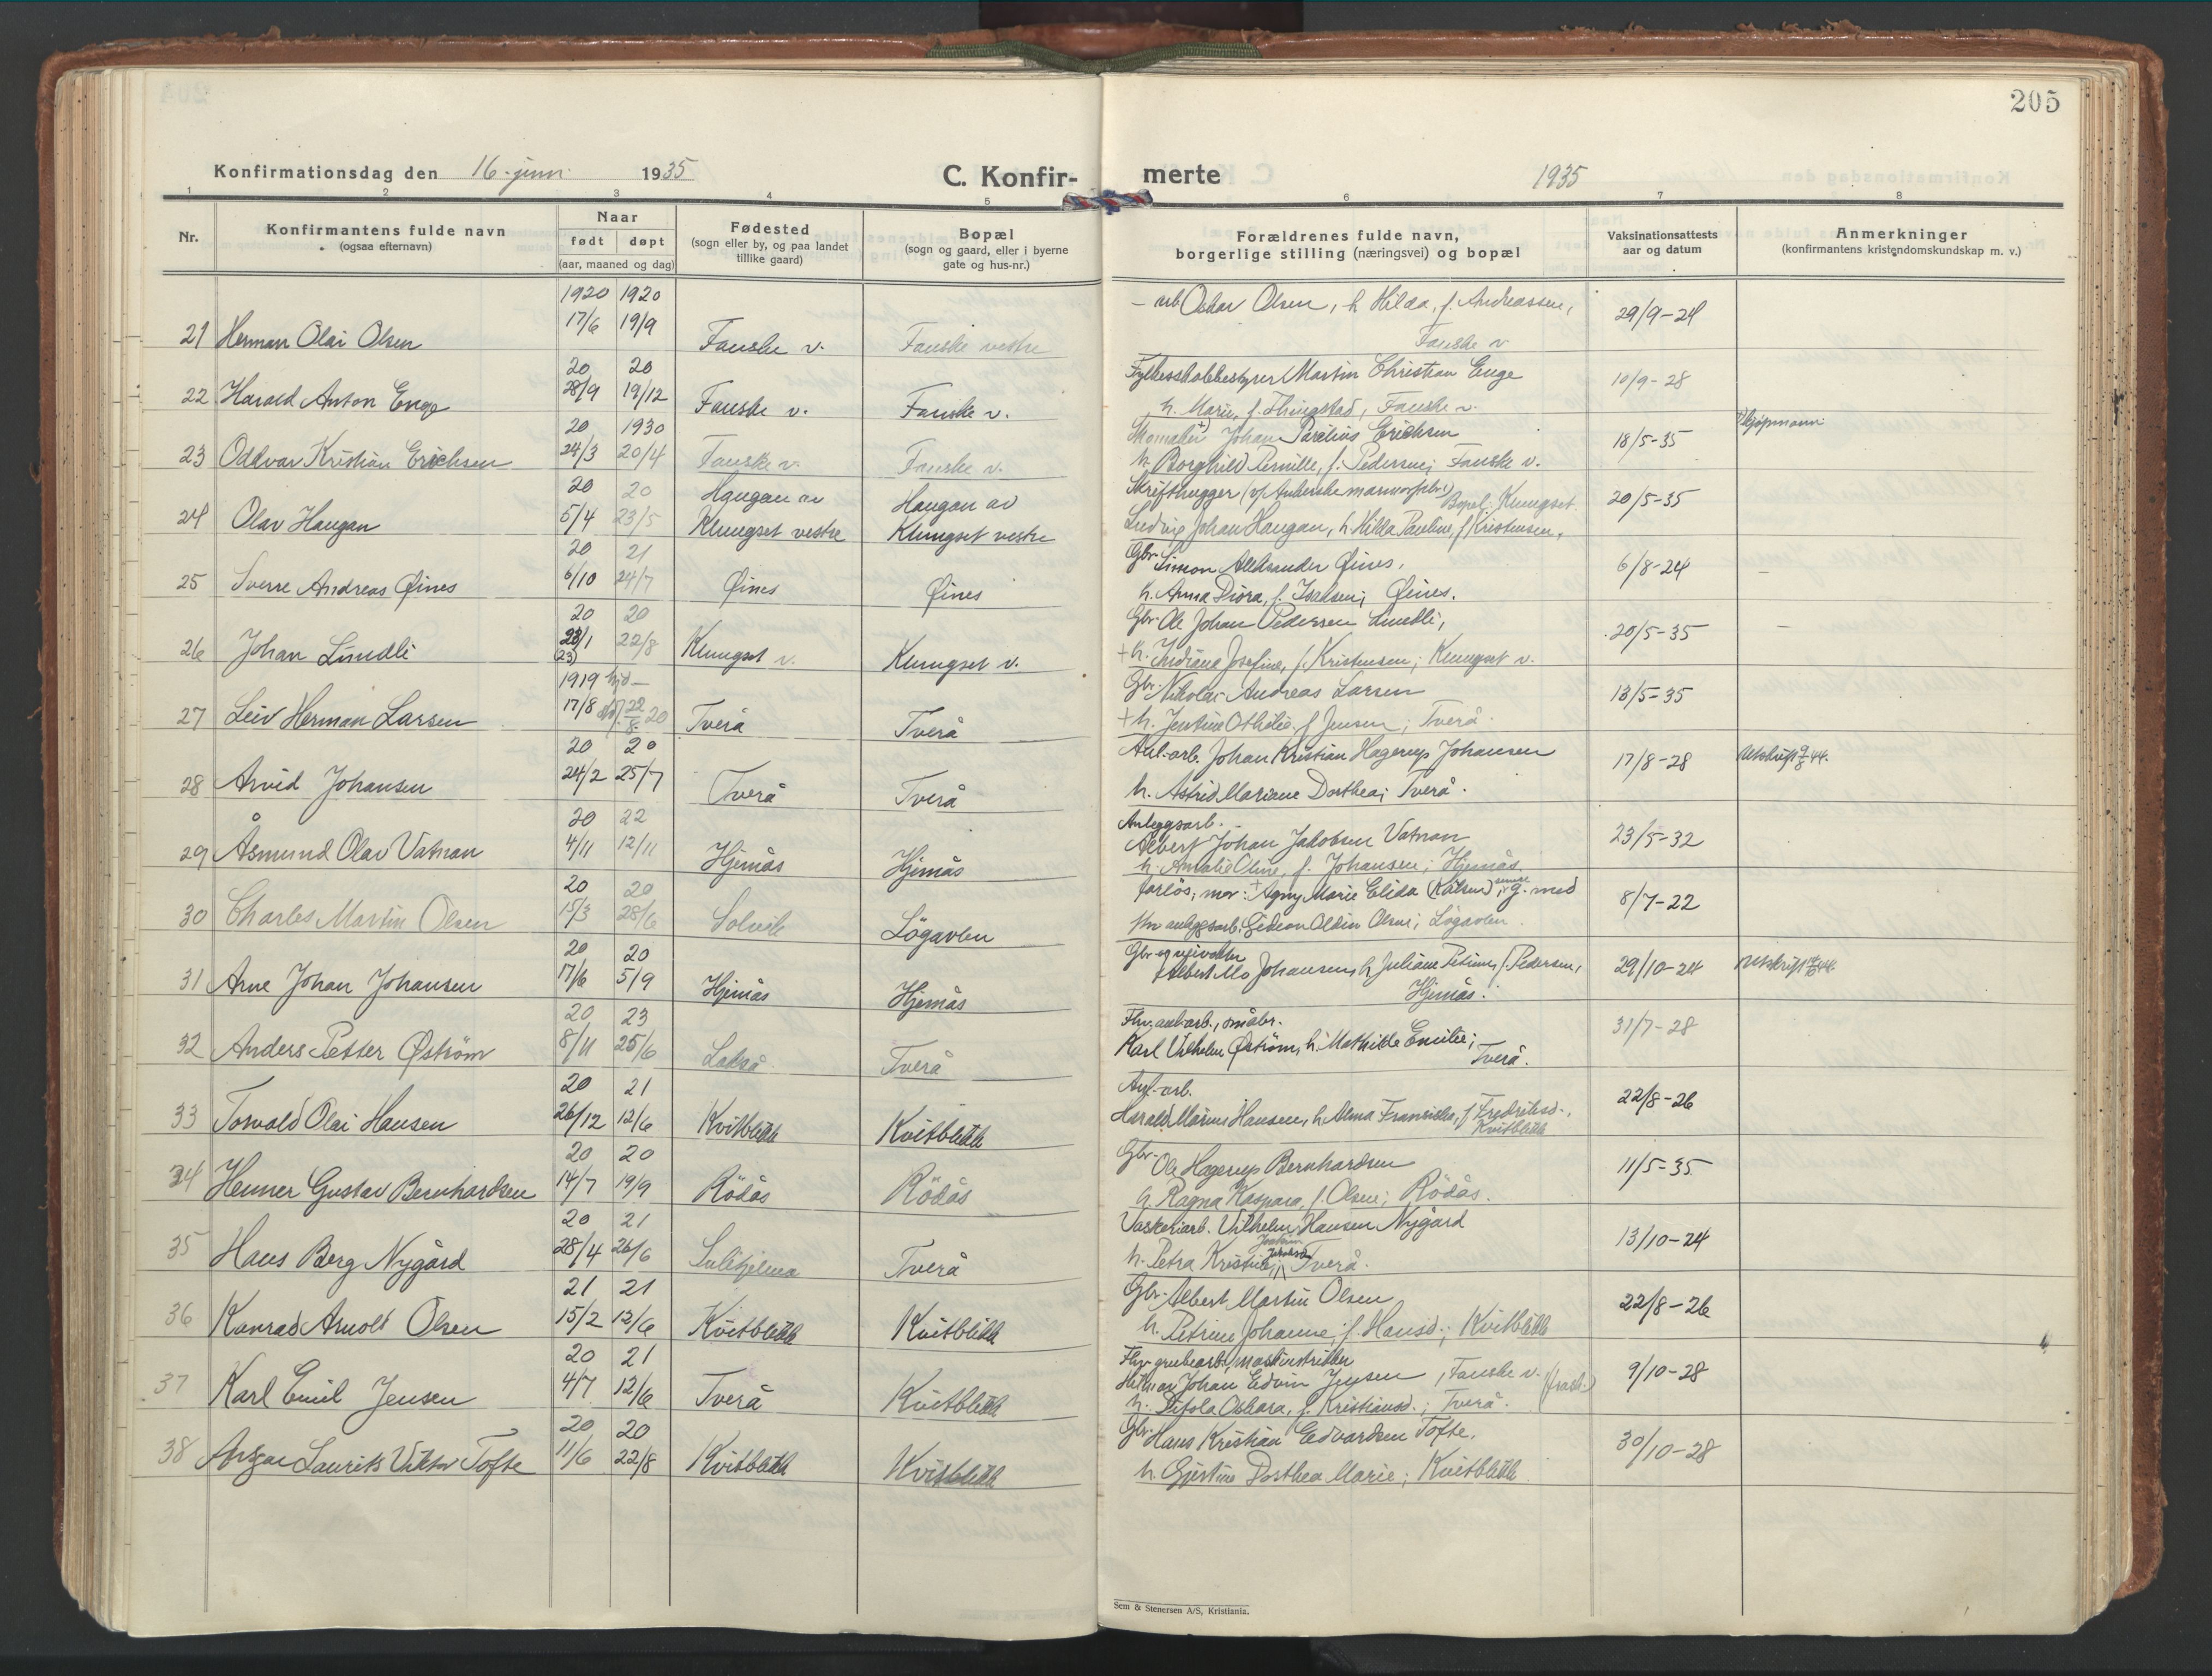 205
Konfirmationsdag den 16. juni 1935
C. Konfir- merte
1935
1 2 3 4 5 6 7 8
Nr.
Konfirmantens fulde navn
(ogsaa efternavn)
Naar
født døpt
(aar, maaned og dag)
Fødested
(sogn eller by, og paa landet
tillike gaard)
Bopæl
(sogn og gaard, eller i byerne
gate og hus-nr.)
Forældrenes fulde navn,
borgerlige stilling (næringsvei) og bopæl
Vaksinationsattests
aar og datum
Anmerkninger
(konfirmantens kristendomskundskap m. v.)
1920 1920
21 Herman Olai Olsen 17/6 19/9 Fauske v. Fauske vestre
– arb. Oskar Olsen, h. Hilda, f. Andreassen, 29/9-24
Fauske v
20 20
22 Harald Anton Enge 28/9 19/12 Fauske v. Fauske v.
Fylkesskolebestyrer Martin Christian Enge 10/9-28
h. Marie, f. Thingstad, Fauske v.
20 1930
23 Oddvar Kristian Erichsen 24/3 20/4 Fauske v. Fauske v.
Skomaker +) Johan Parelius Erichsen 18/5-35 +) kjøpmann
h. Borghild Pernille, f. Pedersen; Fauske v.
20 20
24 Olav Haugan 5/4 23/5 Haugan av Klungset vestre Haugan av Klungset vestre
Skrifthugger (v/ Ankerske marmorforr.) Bopel: Klungset. 20/5-35
Ludvig Johan Haugan, h. Hilda Pauline, f. Kristensen,
20 21
25 Sverre Andreas Øines 6/10 24/7 Øines Øines
Gbr. Simon Aleksander Øines, 6/8-24 –
h. Anna Diora, f. Isaksen; Øines.
20 20
26 Johan Lundli 23/1 (23) 22/8 Klungset v. Klungset v.
Gbr. Ole Johan Pedersen Lundli, 20/5-35 –
+ h. Indiana Josefine, f. Kristensen; Klungset v.
1919 hjd –
27 Leiv Herman Larsen 17/8 22/8 20 Tverå Tverå
Gbr. Nikolai Andreas Larsen 13/5-35
+ h. Jentine Othilie, f. Jensen; Tverå.
20 20
28 Arvid Johansen 24/2 25/7 Tverå Tverå
Anl.-arb. Johan Kristian Hagerup Johansen 17/8-28 Utskrift 9/8 44.
h. Astrid Mariane Dorthea; Tverå.
20 22
29 Åsmund Olav Vatnan 4/11 12/11 Hjemås Hjemås
Anleggsarb.
Albert Johan Jakobsen Vatnan 23/5-32
h. Amalie Oline, f. Johansen; Hjemås.
20 20
30 Charles Martin Olsen 15/3 28/6 Solvik Løgavlen
farløs, mor: + Agny Marie Elida (Karlsen) senere g. med 8/7-22
anleggsarb. Gideon Oldin Olsen; Løgavlen.
20 20
31 Arne Johan Johansen 17/6 5/9 Hjemås Hjemås
Gbr. og veivokter
Albert Mo Johansen, h. Juliane Petrine, f. Pedersen, 29/10-24 Utskrift
Hjemås.
20 23
32 Anders Petter Øström 8/11 25/6 Lakså Tverå
Fhv. anl.arb., småbr. 31/7-28
Karl Vilhelm Øström, h. Mathilde Emilie; Tverå.
20 21
33 Torvald Olai Hansen 26/12 12/6 Kvitblikk Kvitblikk
Anl.-arb. 22/8-26
Harald Marius Hansen, h. Alma Fransiska, f. Fredriksd., Kvitblikk
20 20
34 Henner Gustav Bernhardsen 14/7 19/9 Rödås Rödås
Gbr. Ole Hagerup Bernhardsen 11/5-35
h. Ragna Kaspara, f. Olsen; Rödås.
20 21
35 Hans Berg Nygård 28/4 26/6 Sulitjelma Tverå
Vaskeriarb. Vilhelm Hansen Nygård 13/10-24
h. Petra Kristine, Tverå.
21 21
36 Konrad Arnolt Olsen 15/2 12/6 Kvitblikk Kvitblikk
Gbr. Albert Martin Olsen 22/8-26
h. Petrine Johanne, f. Hansd.; Kvitblikk
20 21
37 Karl Emil Jensen 4/7 12/6 Tverå Kvitblikk
Fhv. grubearb., maskinstrikker
Johan Edvin Jensen, Fauske v. (frask.) 9/10-28
h. Oskara, f. Kristiansd.; Tverå.
20 20
38 Ansgar Laurits Viktor Tofte 11/6 22/8 Kvitblikk Kvitblikk
Gbr. Hans Kristian Edvardsen Tofte, 30/10-28
h. Gjertine Dorthea Marie; Kvitblikk
Sem & Stenersen A/S, Kristiania.